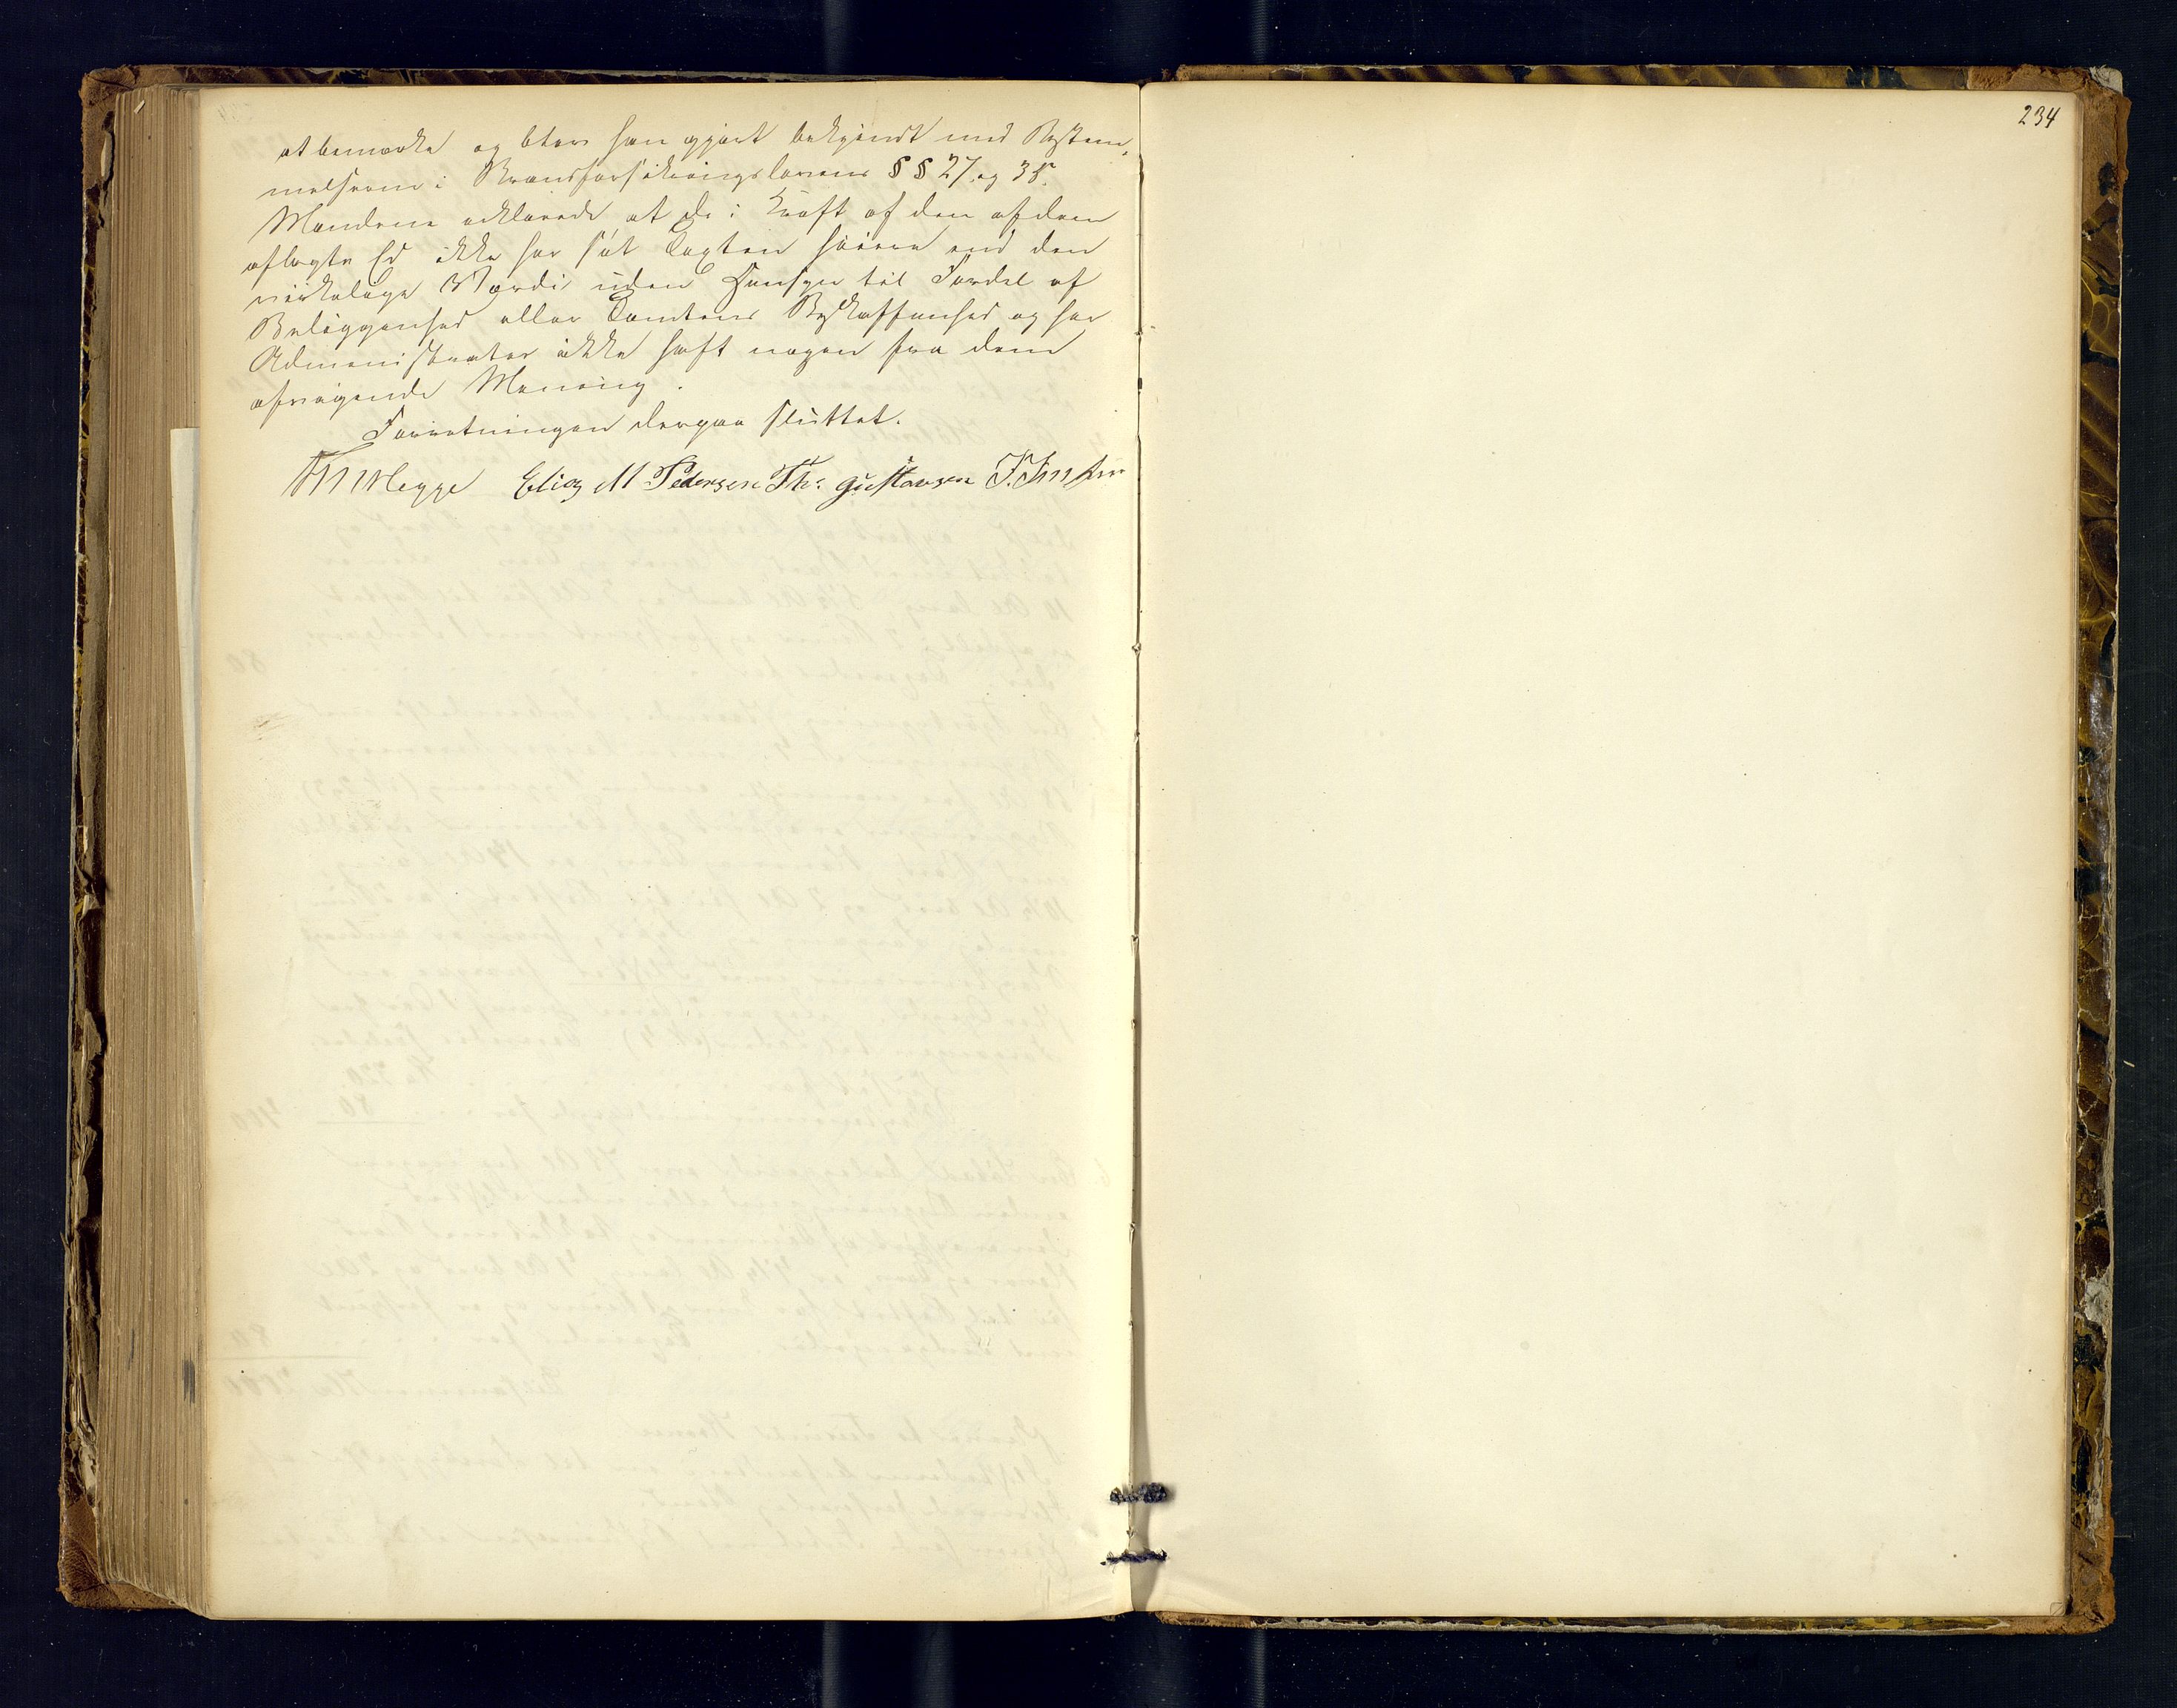 at bemærke og blev han gjort bekjendt med Bestem-
melserne i Brandforsikringslovens §§ 27 og 35.
Mændene erklærede at de i Kraft af den af dem
aflagte Ed ikke har sat Taxten høiere end den
virkelige Værdi uden Hensyn til Fordel af
Beliggenhed eller Tomtens Beskaffenhed og har
Administrator ikke haft nogen fra dem
afvigende Mening.
Forretningen dermed sluttet.
Elias M Pedersen Ths Gustavsen
234